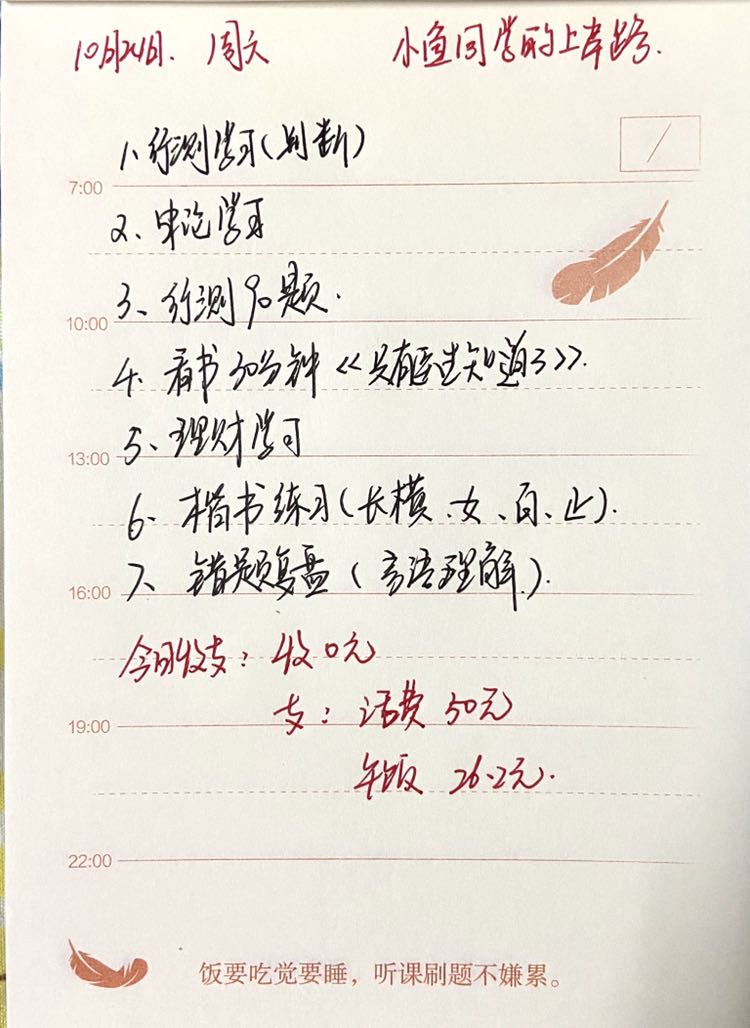 10月21日. 周六 小鱼同学的上岸路.
1、行测学习(判断)
7:00
2、申论学习
3、行测90题.
10:00
4、看书30分钟《只有医生知道3》.
5、理财学习
13:00
6、楷书练习(长横、女、百、止).
7、错题复盘(言语理解).
16:00
今日收支: 收0元
支: 话费 50元
19:00
午饭 26.2元.
22:00
饭要吃觉要睡，听课刷题不嫌累。